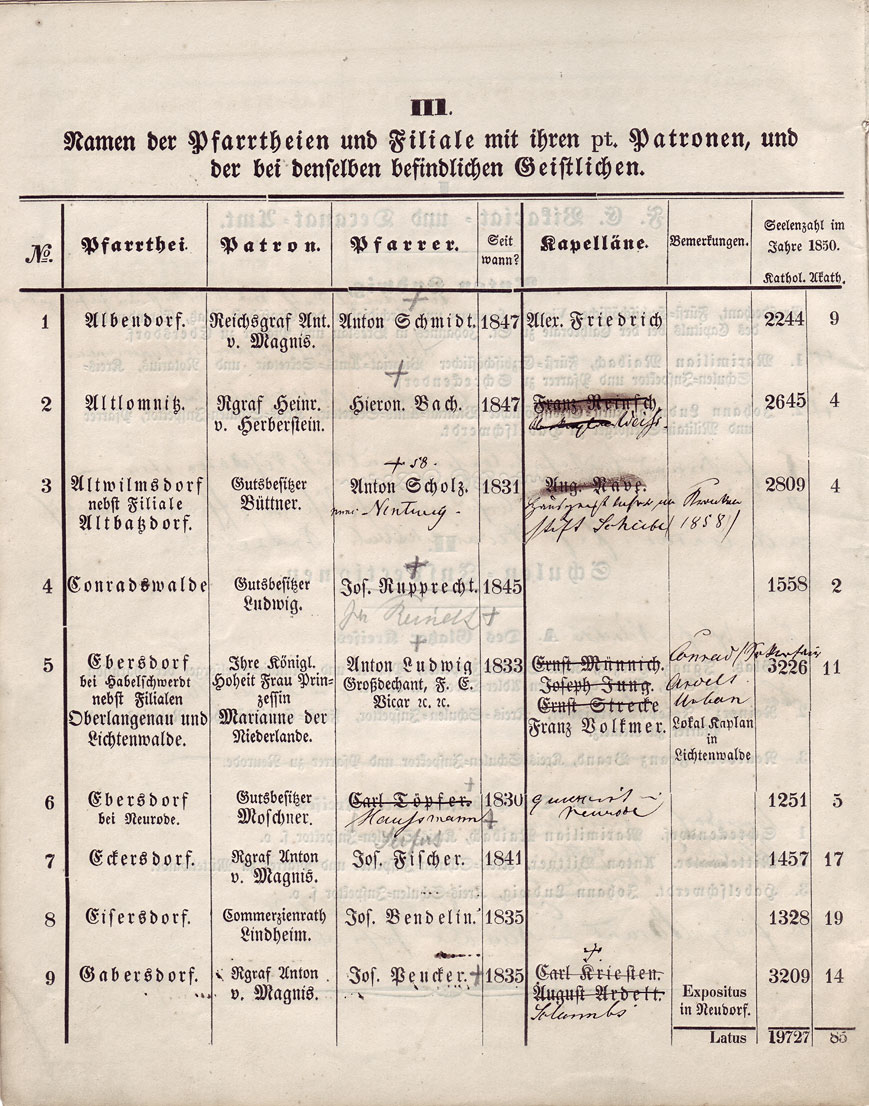 III.
Namen der Pfarrtheien und Filiale mit ihren pt. Patronen, und
der bei denselben befindlichen Geistlichen.
No. Pfarrthei. Patron. Pfarrer. Seit wann? Kapelläne. Bemerkungen. Seelenzahl im Jahre 1850.
Kathol. Akath.
1 Albendorf. Reichsgraf Ant. Anton Schmidt. 1847 Alex. Friedrich 2244 9
v. Magnis.
2 Altlomnitz. Rgraf Heinr. Hieron. Bach. 1847 Franz Reinsch 2645 4
v. Herberstein. Weiss.
+ 58.
3 Altwilmsdorf Gutsbesitzer Anton Scholz. 1831 Aug. Rave. 2809 4
nebst Filiale Büttner. Nentwig
Altbatzdorf. Stift Scheibe (1858)
4 Conradswalde Gutsbesitzer Jos. Rupprecht. 1845 1558 2
Ludwig.
5 Ebersdorf Ihre Königl. Anton Ludwig 1833 Ernst Männich. Conrad 3226 11
bei Habelschwerdt Hoheit Frau Prin- Großdechant, F. E. Joseph Jung. Ardelt
nebst Filialen zessin Vicar ꝛc. ꝛc. Ernst Strecke Urban
Oberlangenau und Marianne der Franz Volkmer. Lokal Kaplan
Lichtenwalde. Niederlande. in
Lichtenwalde
6 Ebersdorf Gutsbesitzer Carl Töpfer. 1830 1251 5
bei Neurode. Moschner. Haussmann Neurode
7 Eckersdorf. Rgraf Anton Jos. Fischer. 1841 1457 17
v. Magnis.
8 Eisersdorf. Commerzienrath Jos. Bendelin. 1835 1328 19
Lindheim.
9 Gabersdorf. Rgraf Anton Jos. Peucker. 1835 Carl Kriesten. 3209 14
v. Magnis. August Ardelt. Expositus
in Neudorf.
Latus 19727 85